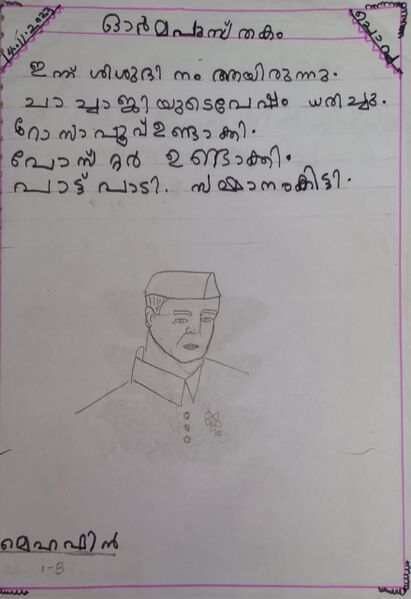 14.11.2023
ഓർമപുസ്തകം
ചൊവ്വ
ഇന്ന് ശിശുദിനം ആയിരുന്നു.
ചാച്ചാജിയുടെവേഷം ധരിച്ചു.
റോസാപ്പൂവ് ഉണ്ടാക്കി.
പോസ്റ്റർ ഉണ്ടാക്കി.
പാട്ട് പാടി. സമ്മാനംകിട്ടി.
മെഹഷിൻ
1-B